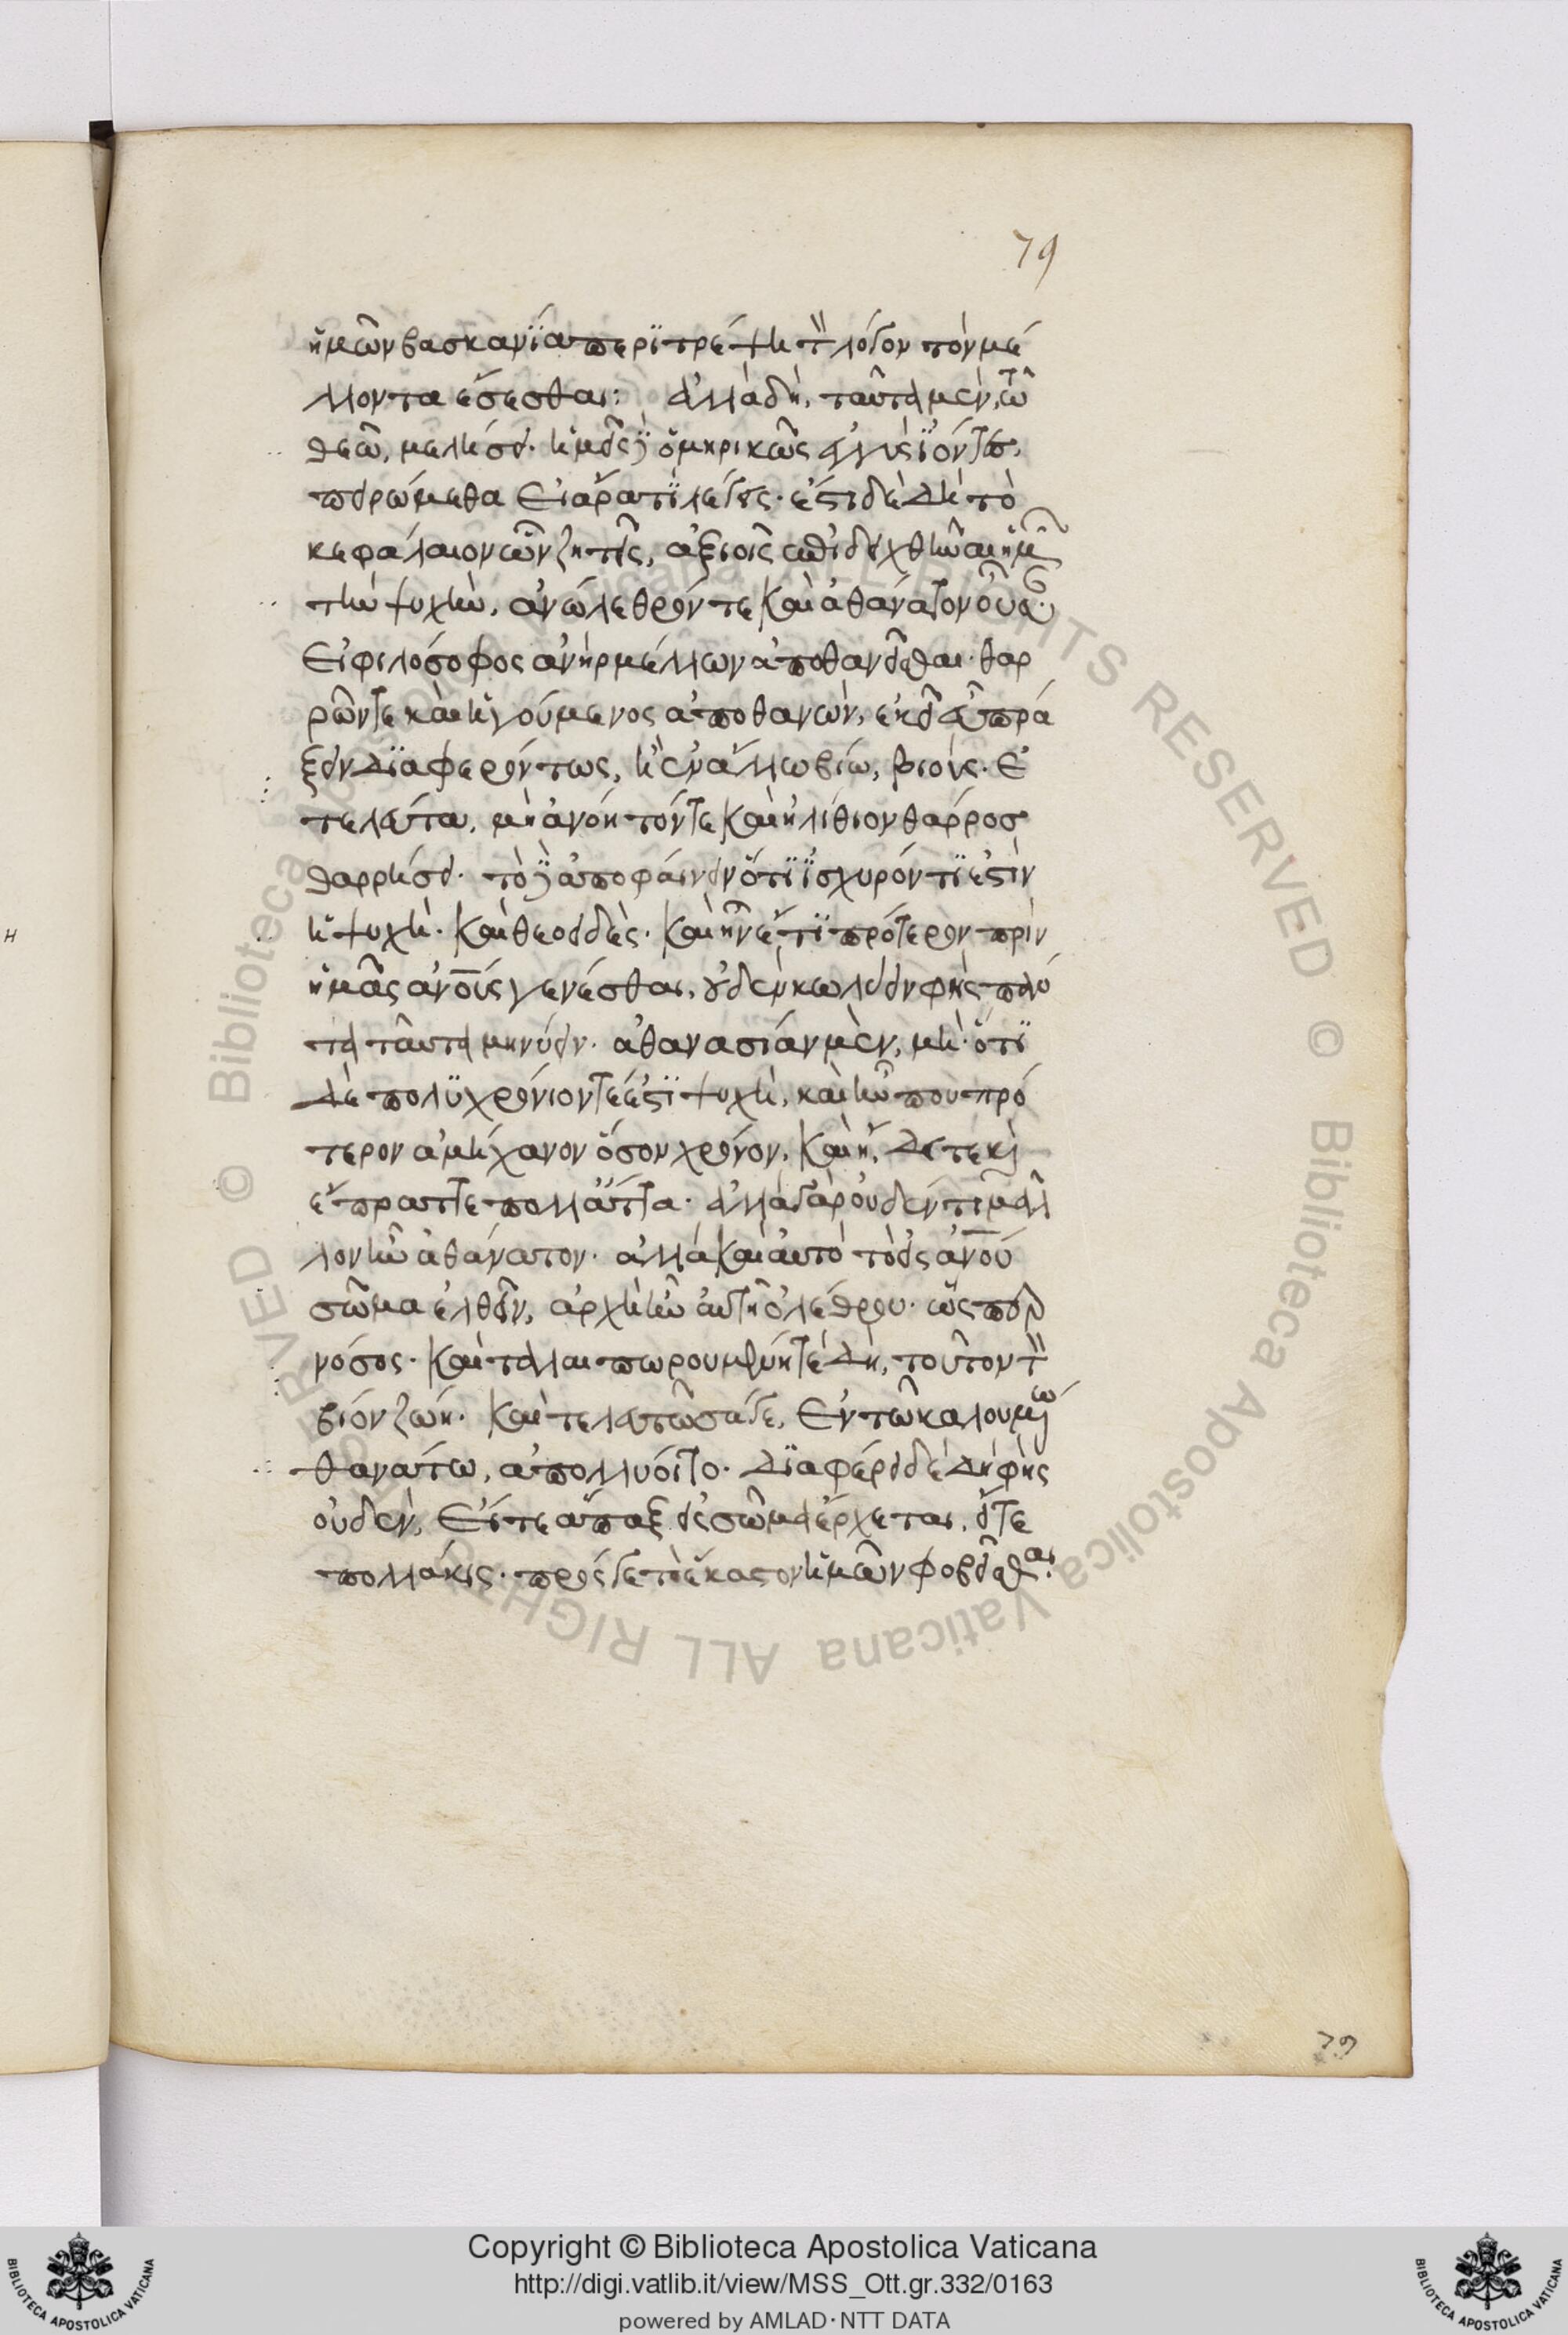 79
ἡμῶν βασκανία περιτρέψη τὸν λόγον τὸν μέ
λλοντα ἔσεσθαι: ἀλλὰ δὴ, ταῦτα μὲν, τῶ
θεῶ, μελήσει. ἡμεῖς δὲ ὁμηρικῶς ἐγγὺς ἰόντες,
πειρώμεθα εἰ ἄρα τὶ λέγεις. ἔστι δὲ δὴ τὸ
κεφάλαιον ὧν ζητεῖς, ἀξιοῖς ἐπιδειχθῆναι ἡμῶν
τὴν ψυχὴν, ἀνώλεθρόν τε καὶ ἀθάνατον οὖσαν.
εἰ φιλόσοφος ἀνὴρ μέλλων ἀποθανεῖσθαι. θαρ
ρῶν τε καὶ ἡγούμενος ἀποθανὼν, ἐκεῖ εὖ πρά
ξειν διαφερόντως, ἢ ἐν ἄλλω βίω, βιοὺς. ἐ
τελεύτα, μὴ ἀνόητόν τε καὶ ἠλίθιον θάρρος
θαρρήσει. τὸ δὲ ἀποφαίνειν ὅτι ἰσχυρόν τι ἐστὶν
ἡ ψυχὴ. καὶ θεοειδὲς. καὶ ἦν ἔτι πρότερον πρὶν
ἡμᾶς ἀνους γενέσθαι, οὐδὲν κωλύειν φὴς πάν
τα ταῦτα μηνύειν. ἀθανασίαν μὲν, μὴ. ὅτι
δὲ πολυχρόνιόν τέ ἐστι ψυχὴ, καὶ ἦν που πρό
τερον ἀμήχανον ὅσον χρόνον, καὶ ἤδει τε καὶ
ἔπραττε πολλὰ ἄττα. ἀλλὰ γὰρ οὐδέν τι μᾶλ
λον ἦν ἀθάνατον. ἀλλὰ καὶ αὐτὸ τὸ εἰς ἀνου
σῶμα ἐλθεῖν, ἀρχὴ ἦν αὐτῆ ὀλέθρου. ὥσπερ
νόσος. καὶ ταλαιπωρουμένη τε δὴ, τοῦτον τὸν
βίον ζώη. καὶ τελευτῶσά γε, ἐν τῶ καλουμένω
θανάτω, ἀπολλύοιτο. διαφέρει δὲ δὴ φὴς
οὐδὲν, εἴτε ἅπαξ εἰς σῶμα ἔρχεται, εἴτε
πολλάκις. πρός γε τὸ ἕκαστον ἡμῶν φοβεῖσθαι.
79
Copyright © Biblioteca Apostolica Vaticana
http://digi.vatlib.it/view/MSS_Ott.gr.332/0163
powered by AMLAD·NTT DATA